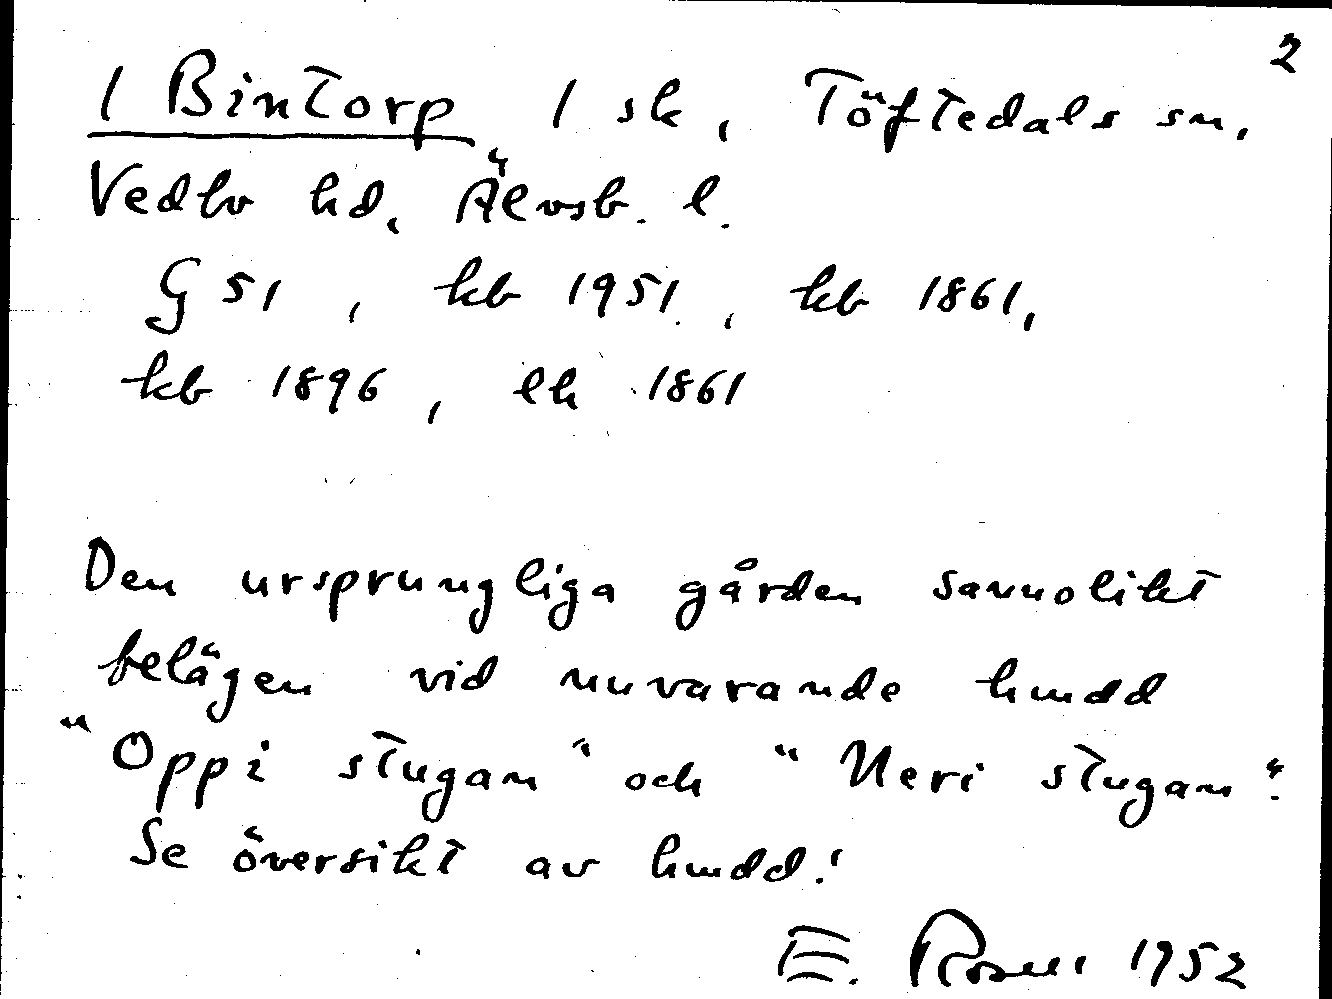 2
1 Bintorp 1 sk, Töftedals sn,
Vedbo hd, Älvsb. l.
G 51, kb 1951, kb 1861,
kb 1896, lh 1861
Den ursprungliga gården sannolikt
belägen vid nuvarande hmdd
"Oppi stugan" och "Neri stugan".
Se översikt av hmdd!
E. 1952